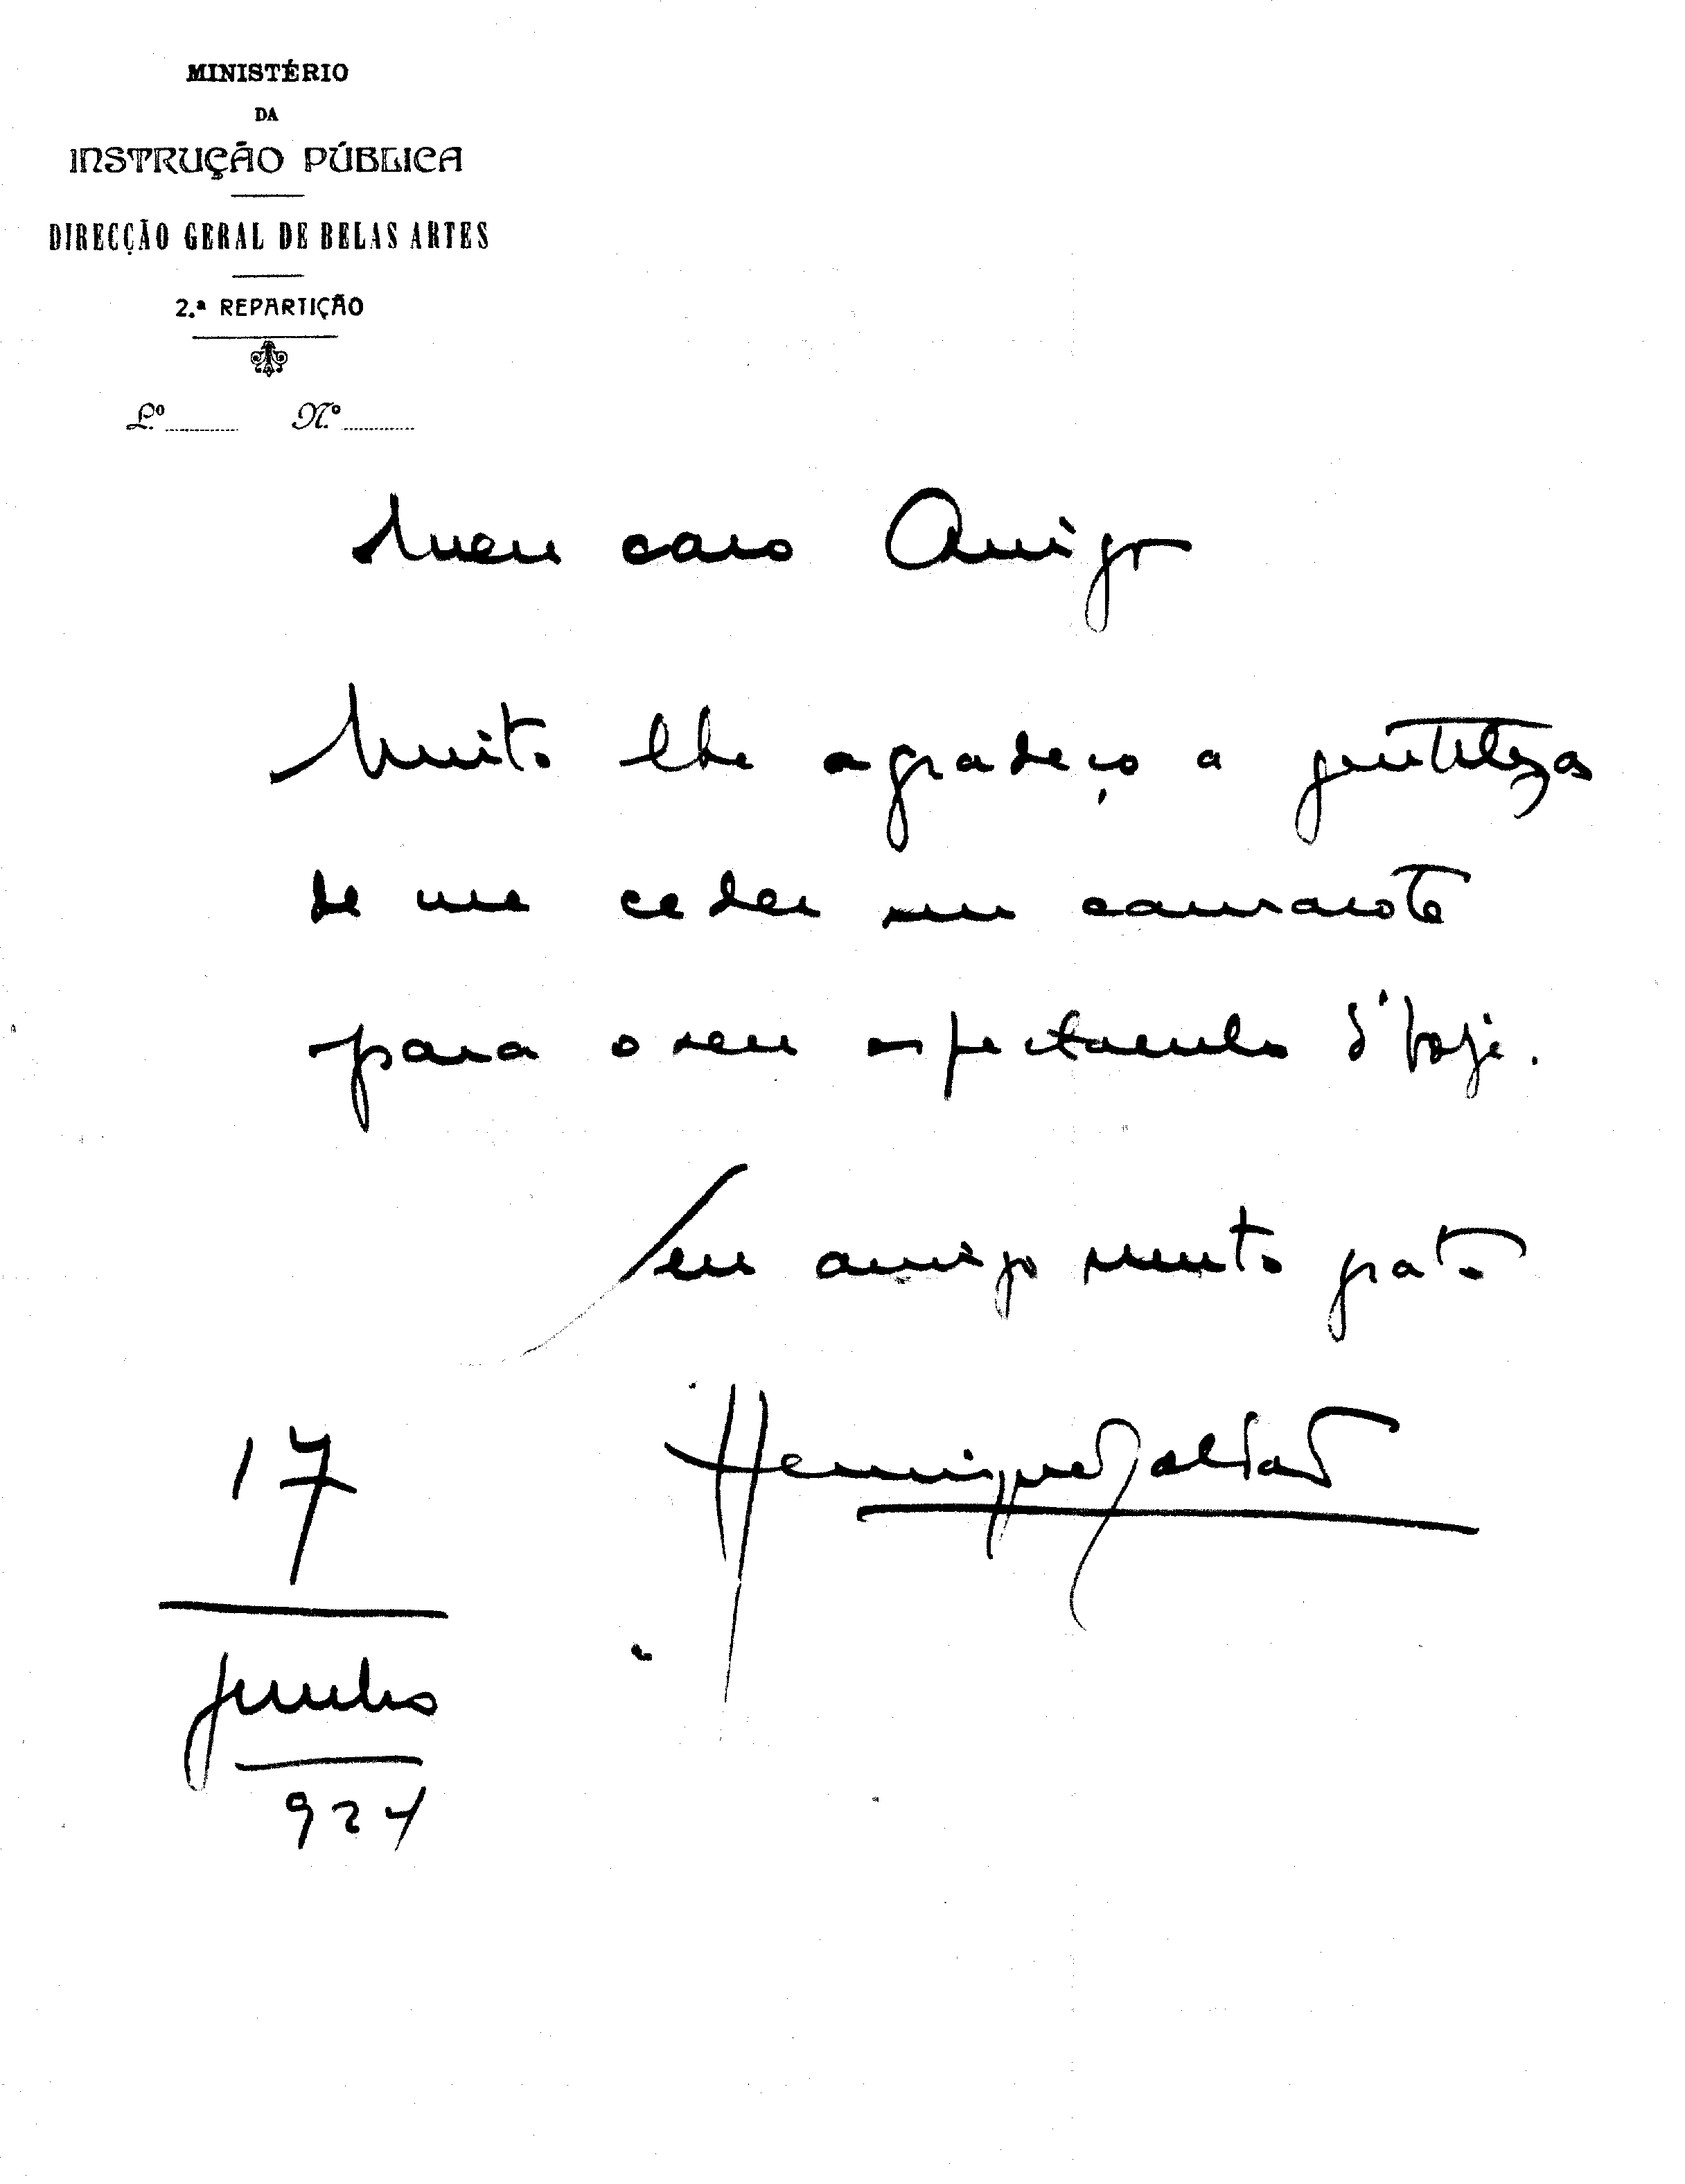 MINISTÉRIO
DA
INSTRUÇÃO PÚBLICA
DIRECÇÃO GERAL DE BELAS ARTES
2.ª REPARTIÇÃO
L.º ........ N.º ........
Meu caro Amigo
Muito lhe agradeço a gentileza
de me ceder um camarote
para o seu espectaculo d'hoje.
Seu amigo muito grato
Henrique
17
Junho
924